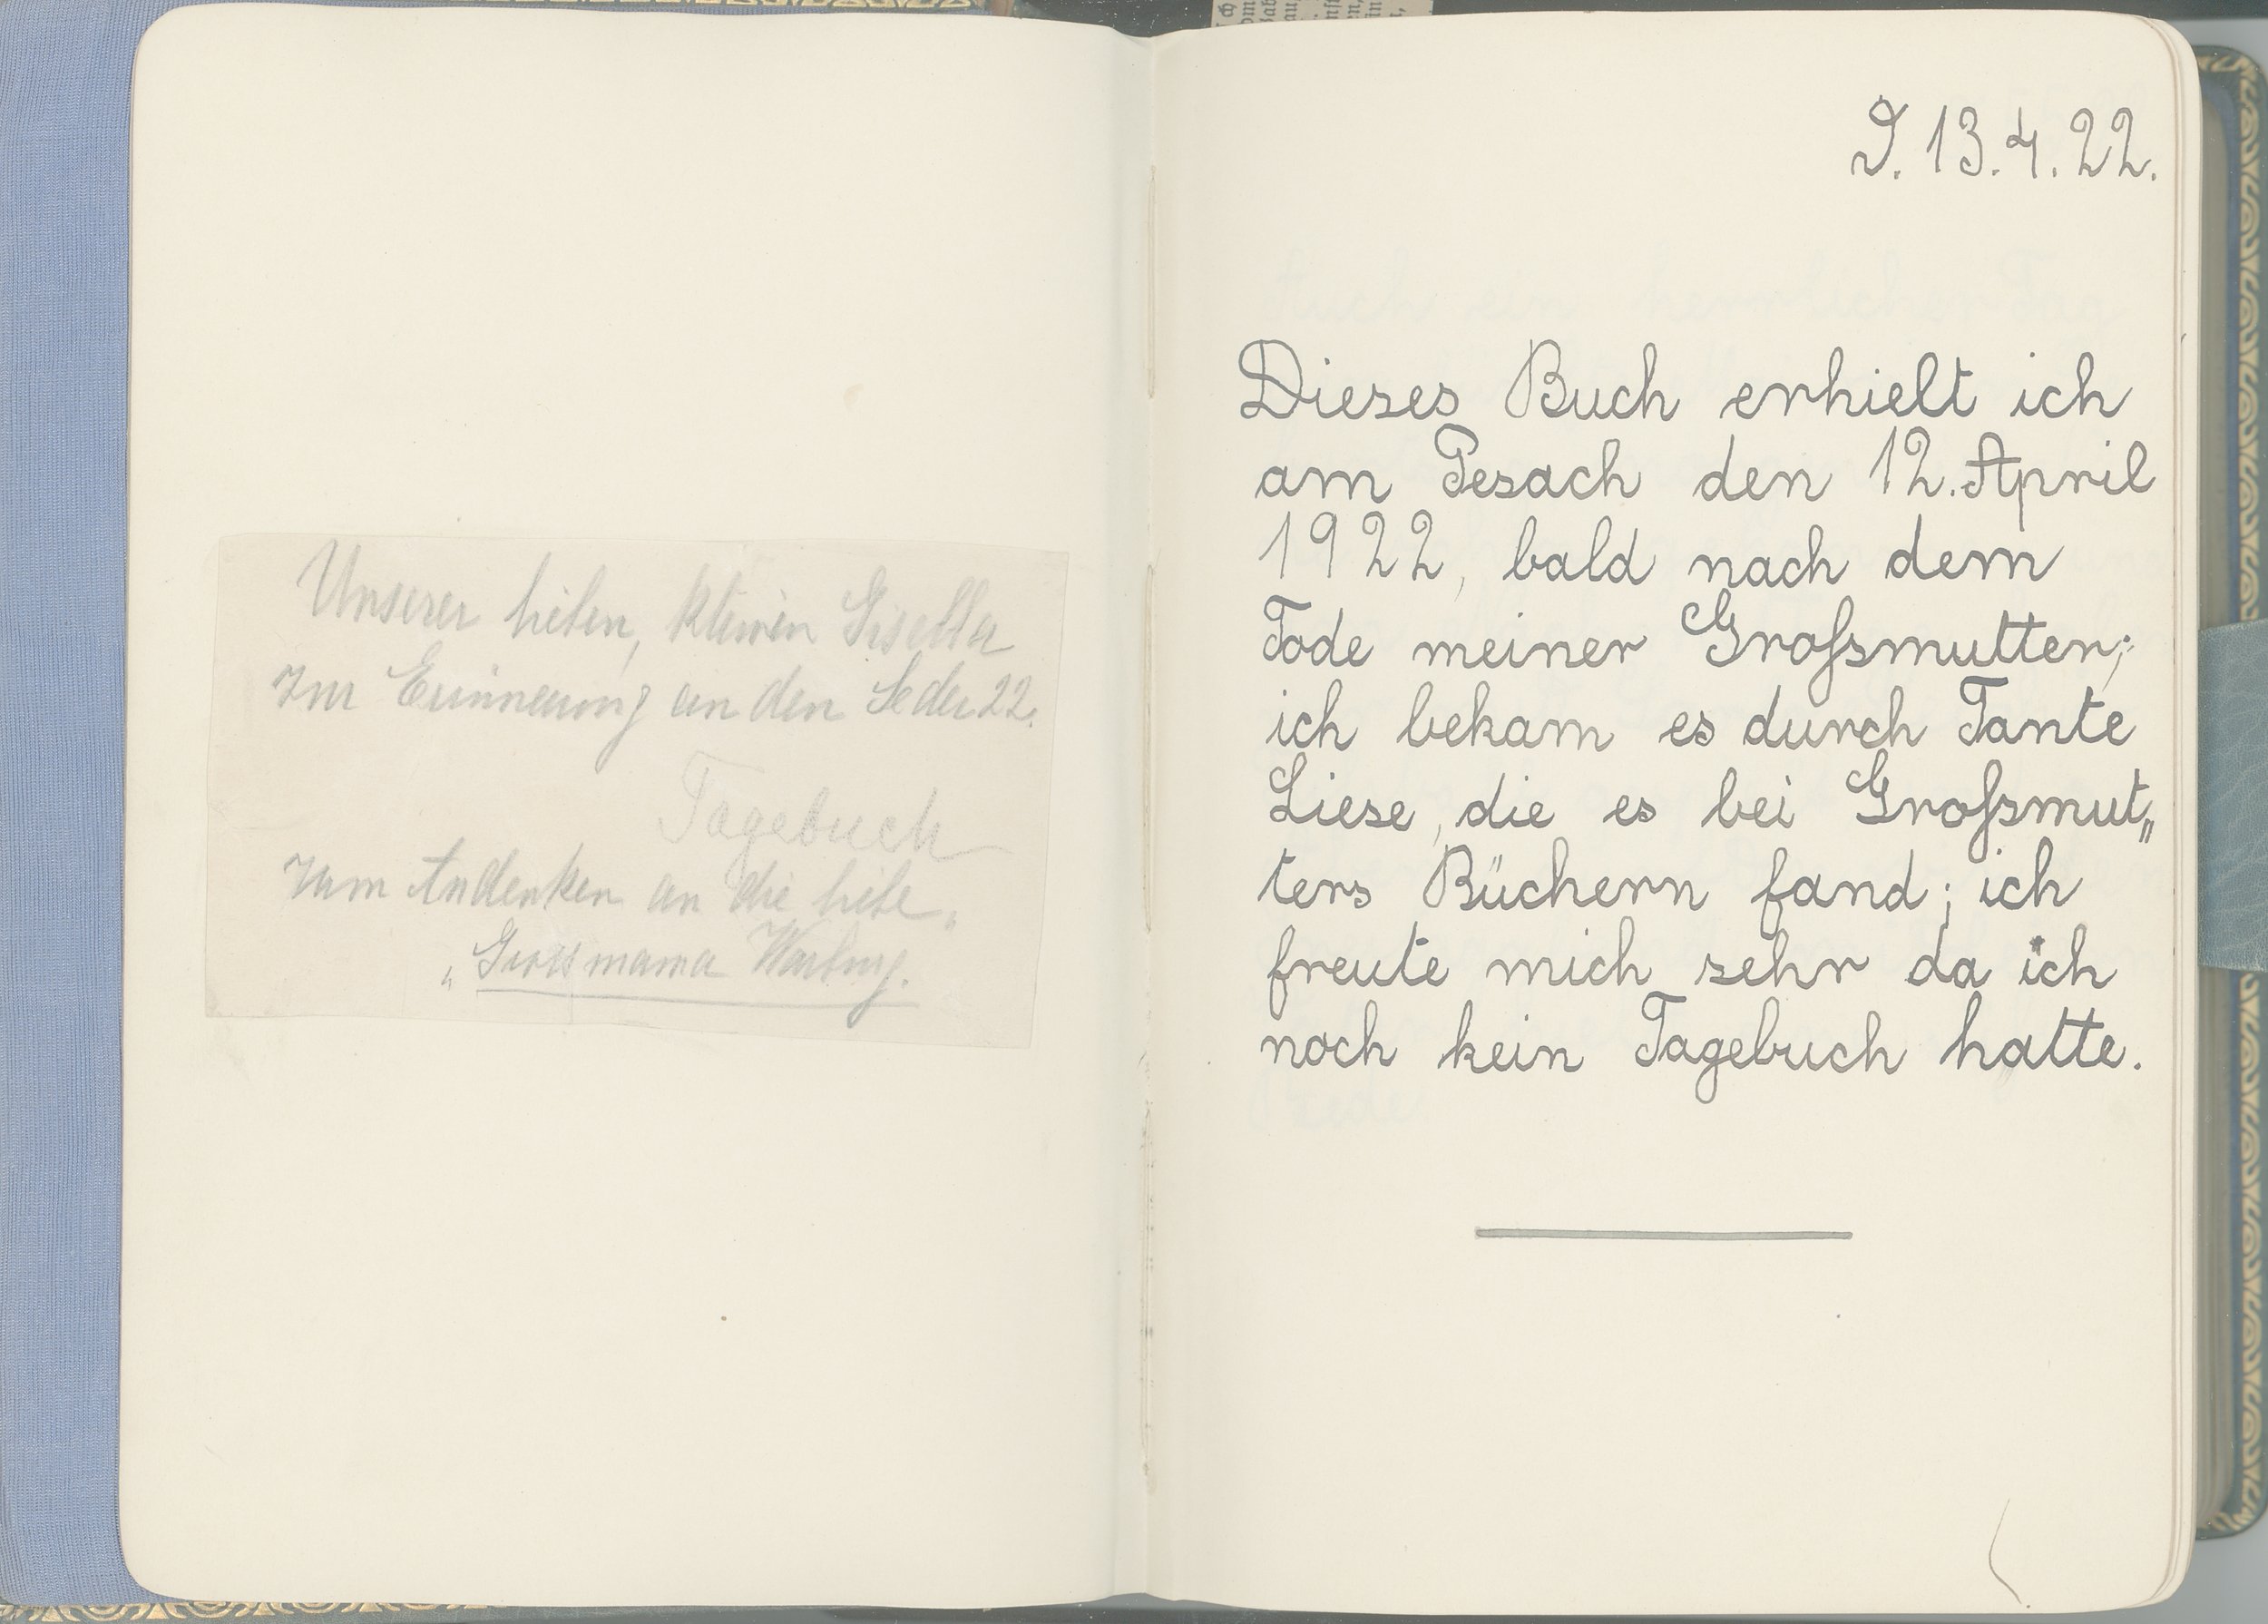 Unserer lieben, kleinen Gisella
zur Erinnerung an den Seder 22.
Tagebuch
zum Andenken an die liebe
„Grossmama Warburg.
13.4.22.
Dieses Buch erhielt ich
am Pesach den 12. April
1922, bald nach dem
Tode meiner Großmutter;
ich bekam es durch Tante
Liese, die es bei Großmut„
ters Büchern fand; ich
freute mich sehr da ich
noch kein Tagebuch hatte.